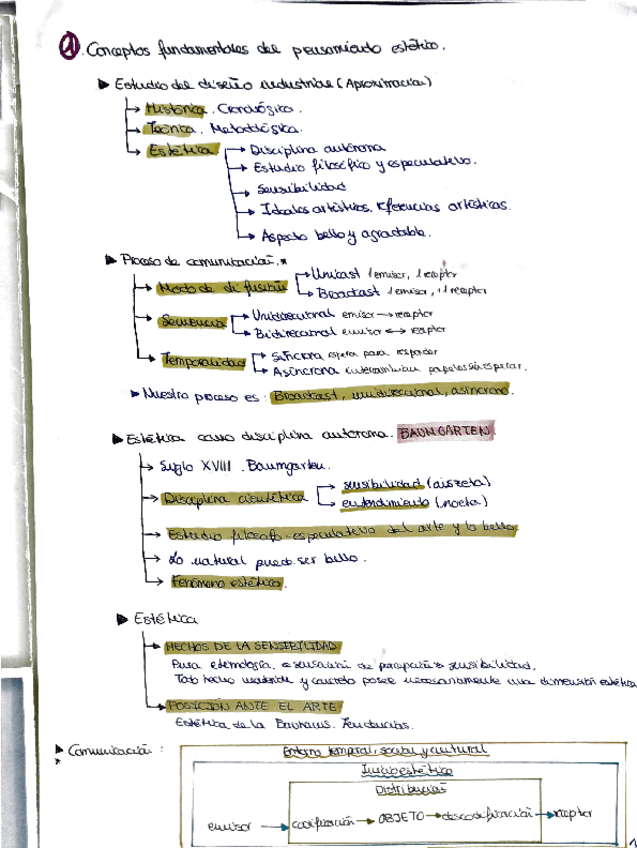 1. Conceptos fundamentales del pensamiento estético.
▶ Estudio del diseño industrial (Aproximación)
→ Histórica. Cronológica.
→ Teórica. Metodológica.
→ Estética → Disciplina autónoma
→ Estudio filosófico y especulativo.
→ Sensibilidad
→ Ideales artísticos. Referencias artísticas.
→ Aspecto bello y agradable.
▶ Proceso de comunicación. *
→ Modo de difusión → Unicast 1 emisor, 1 receptor
→ Broadcast 1 emisor, +1 receptor
→ Secuencia → Unidireccional emisor → receptor
→ Bidireccional emisor ↔ receptor
→ Temporalidad → Síncrona espera para responder
→ Asíncrona intercambian papeles sin esperar.
▶ Nuestro proceso es: Broadcast, unidireccional, asíncrono.
▶ Estética como disciplina autónoma. BAUMGARTEN
→ Siglo XVIII. Baumgarten.
→ Disciplina científica → sensibilidad (aiszeta)
→ entendimiento (noeta)
→ Estudio filosofo-especulativo del arte y lo bello
→ Lo natural puede ser bello.
→ Fenómeno estético.
▶ Estética
→ HECHOS DE LA SENSIBILIDAD
Pura etimología. sensación de percepción sensibilidad.
Todo hecho material y concreto posee necesariamente una dimensión estética
→ POSICIÓN ANTE EL ARTE
Estética de la Bauhaus. Tendencias.
▶ Comunicación:
*
Entorno temporal, social y cultural
Juicio estético
Distribución
emisor → codificación → OBJETO → descodificación → receptor